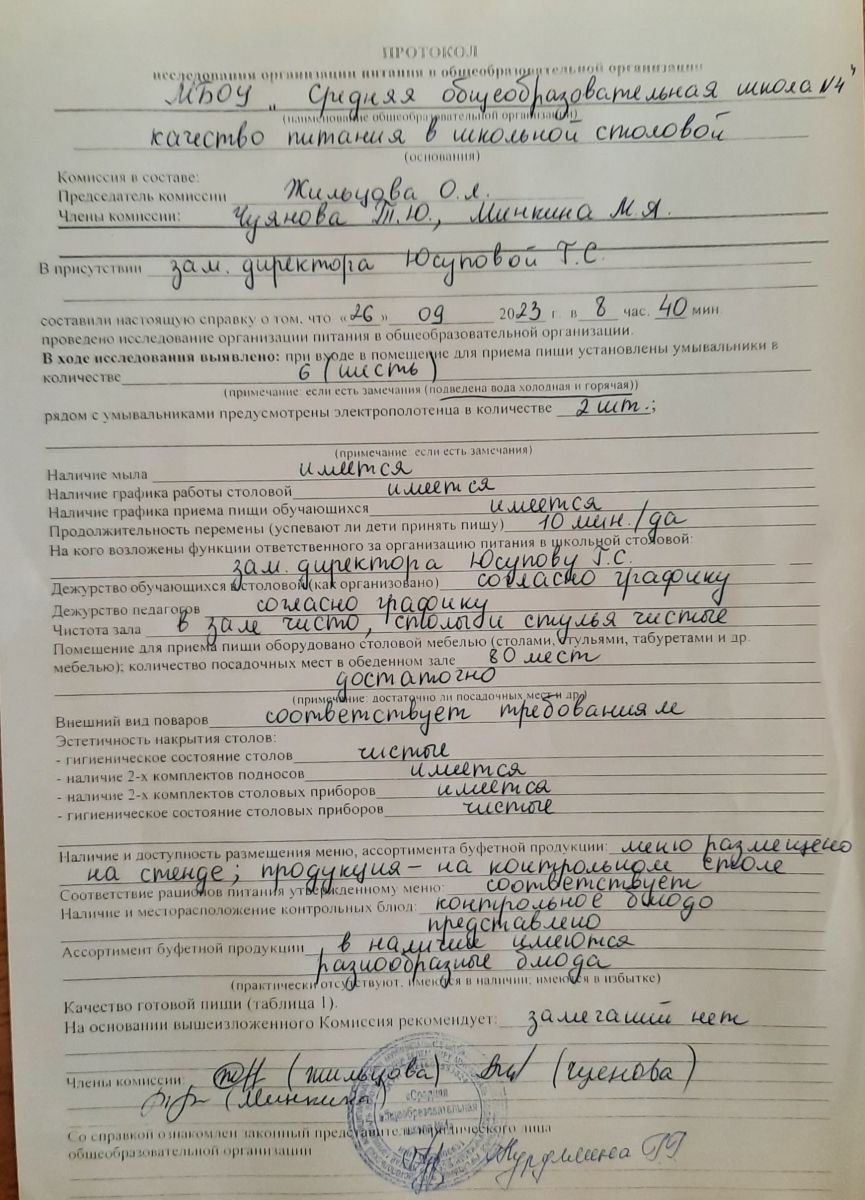 ПРОТОКОЛ
исследования организации питания в общеобразовательной организации
МБОУ „Средняя общеобразовательная школа №4"
(наименование общеобразовательной организации)
качество питания в школьной столовой
(основания)
Комиссия в составе:
Председатель комиссии Жильцова О.Л.
Члены комиссии: Чуянова Т.Ю., Минкина М.Я.
В присутствии зам. директора Юсуповой Г.С.
составили настоящую справку о том, что «26» 09 2023 г. в 8 час. 40 мин.
проведено исследование организации питания в общеобразовательной организации.
В ходе исследования выявлено: при входе в помещение для приема пищи установлены умывальники в
количестве 6 (шесть)
(примечание: если есть замечания (подведена вода холодная и горячая))
рядом с умывальниками предусмотрены электрополотенца в количестве 2 шт.;
(примечание: если есть замечания)
Наличие мыла имеется
Наличие графика работы столовой имеется
Наличие графика приема пищи обучающихся имеется
Продолжительность перемены (успевают ли дети принять пищу) 10 мин./да
На кого возложены функции ответственного за организацию питания в школьной столовой:
зам. директора Юсупову Г.С.
Дежурство обучающихся в столовой (как организовано) согласно графику
Дежурство педагогов согласно графику
Чистота зала в зале чисто, столы и стулья чистые
Помещение для приема пищи оборудовано столовой мебелью (столами, стульями, табуретами и др.
мебелью); количество посадочных мест в обеденном зале 80 мест
достаточно
(примечание: достаточно ли посадочных мест и др.)
Внешний вид поваров соответствует требованиям
Эстетичность накрытия столов:
- гигиеническое состояние столов чистые
- наличие 2-х комплектов подносов имеется
- наличие 2-х комплектов столовых приборов имеется
- гигиеническое состояние столовых приборов чистые
Наличие и доступность размещения меню, ассортимента буфетной продукции: меню размещено
на стенде; продукция – на контрольном столе
Соответствие рационов питания утвержденному меню: соответствует
Наличие и месторасположение контрольных блюд: контрольное блюдо
представлено
Ассортимент буфетной продукции в наличии имеются
разнообразные блюда
(практически отсутствуют, имеются в наличии, имеются в избытке)
Качество готовой пищи (таблица 1).
На основании вышеизложенного Комиссия рекомендует: замечаний нет
Члены комиссии: (Жильцова) (Чуянова)
(Минкина)
«Средняя
общеобразовательная
Со справкой ознакомлен законный представитель юридического лица
общеобразовательной организации